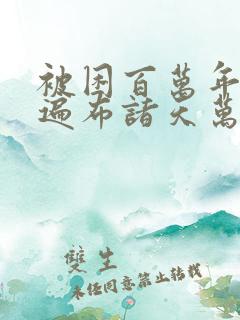 被困百萬年
遍布諸天萬
雙生
未经同意禁止转载